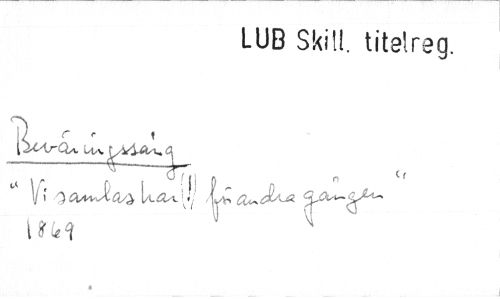 LUB Skill. titelreg.
Beväringssång
"Vi samlas har (!) för andra gången"
1869